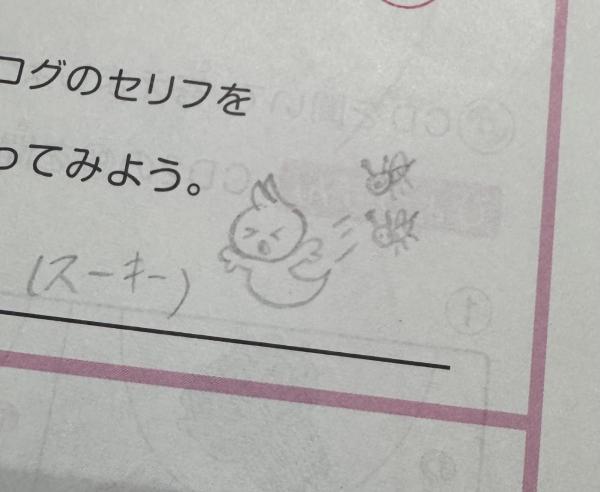 コグのセリフを
ってみよう。
(スーキー)